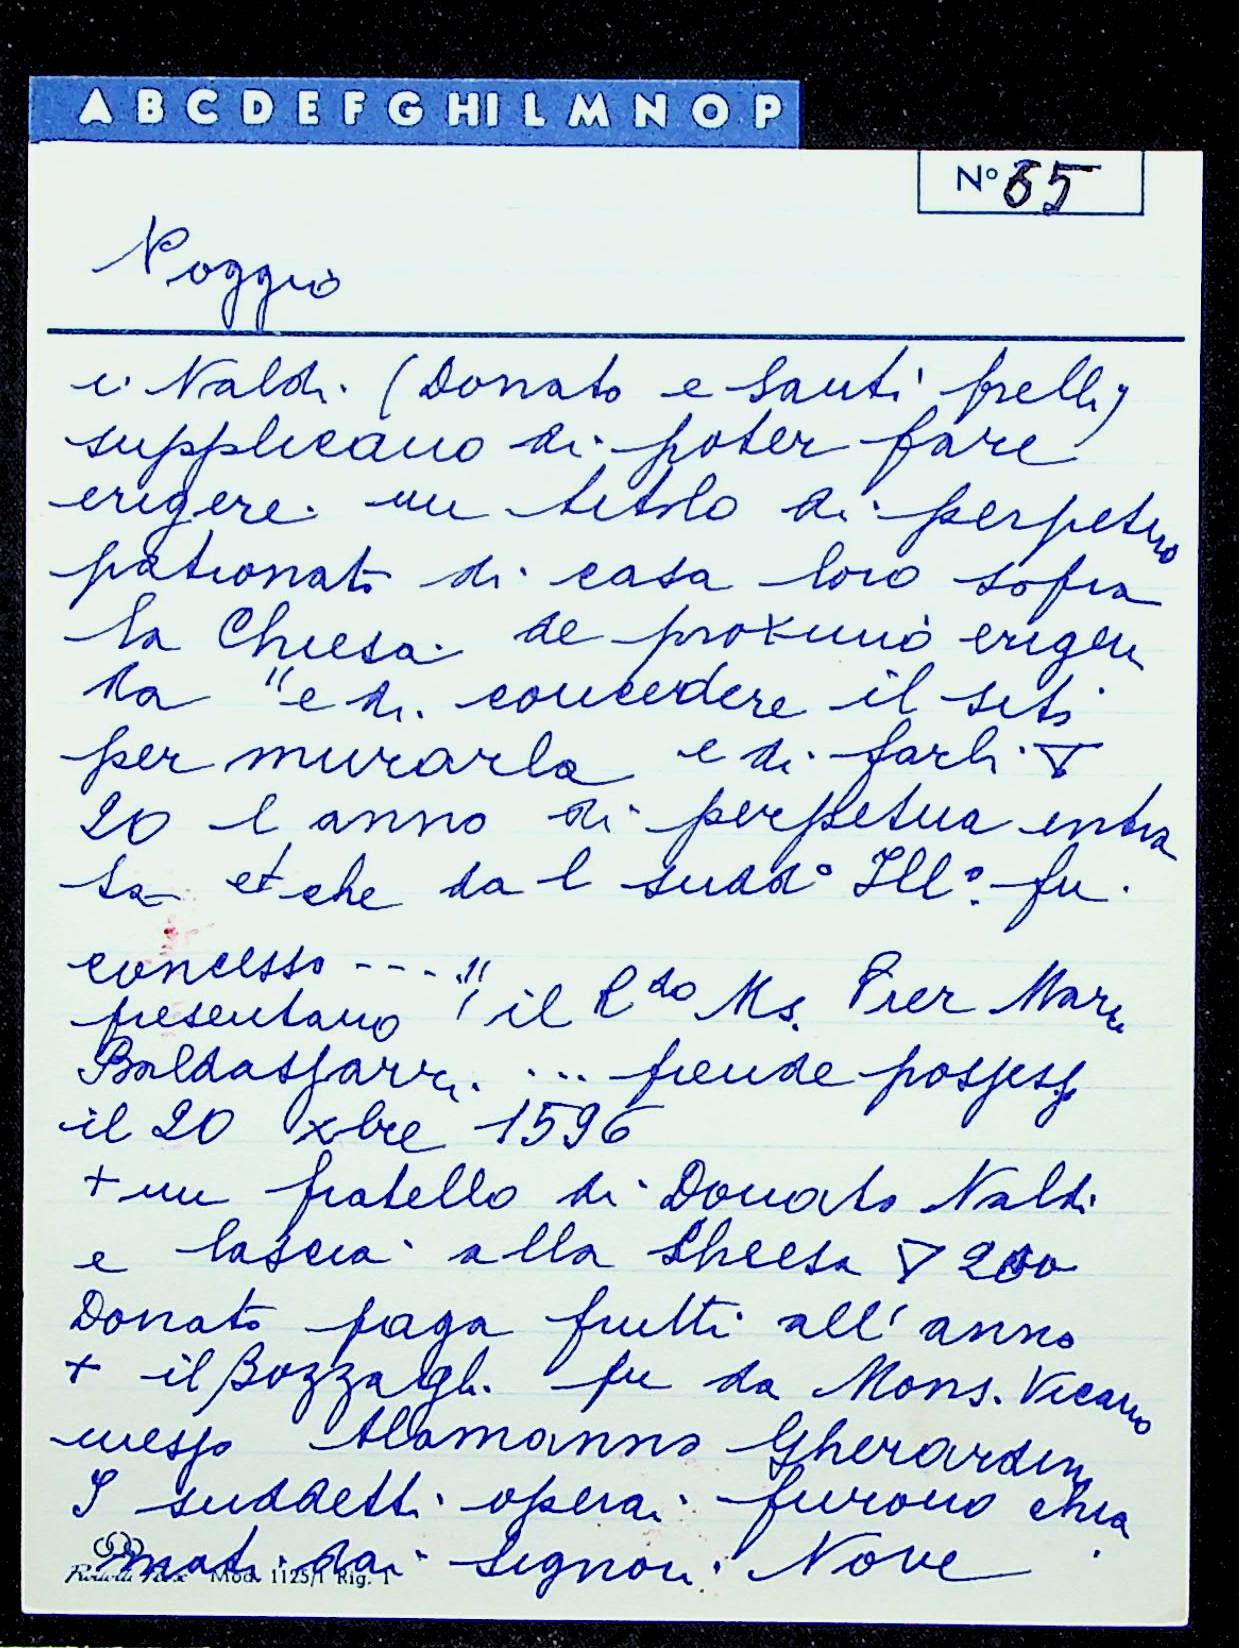 A B C D E F G HI L M N O P
N° 65
Poggio
i Naldi (Donato e Santi frelli)
supplicano di poter fare
erigere un titolo di perpetuo
patronato di casa loro sopra
la Chiesa de proximo erigen
da "e di concedere il sito
per murarla e di farli ▽
20 l anno di perpetua entra
ta et che da l sudd° Ill° fu
concesso ---"
presentano "il R do Ms. Pier Mare
Baldassarri ... prende possesso
il 20 xbre 1596
+ un fratello di Donato Naldi
e lascia alla Chiesa ▽ 200
Donato paga frutti all' anno
+ il Bozzagli fu da Mons. Vicario
messo Alamanno Gherardini
I suddetti operai furono chia
mati dai Signori Nove
Mod. 1125/1 Rig. 1